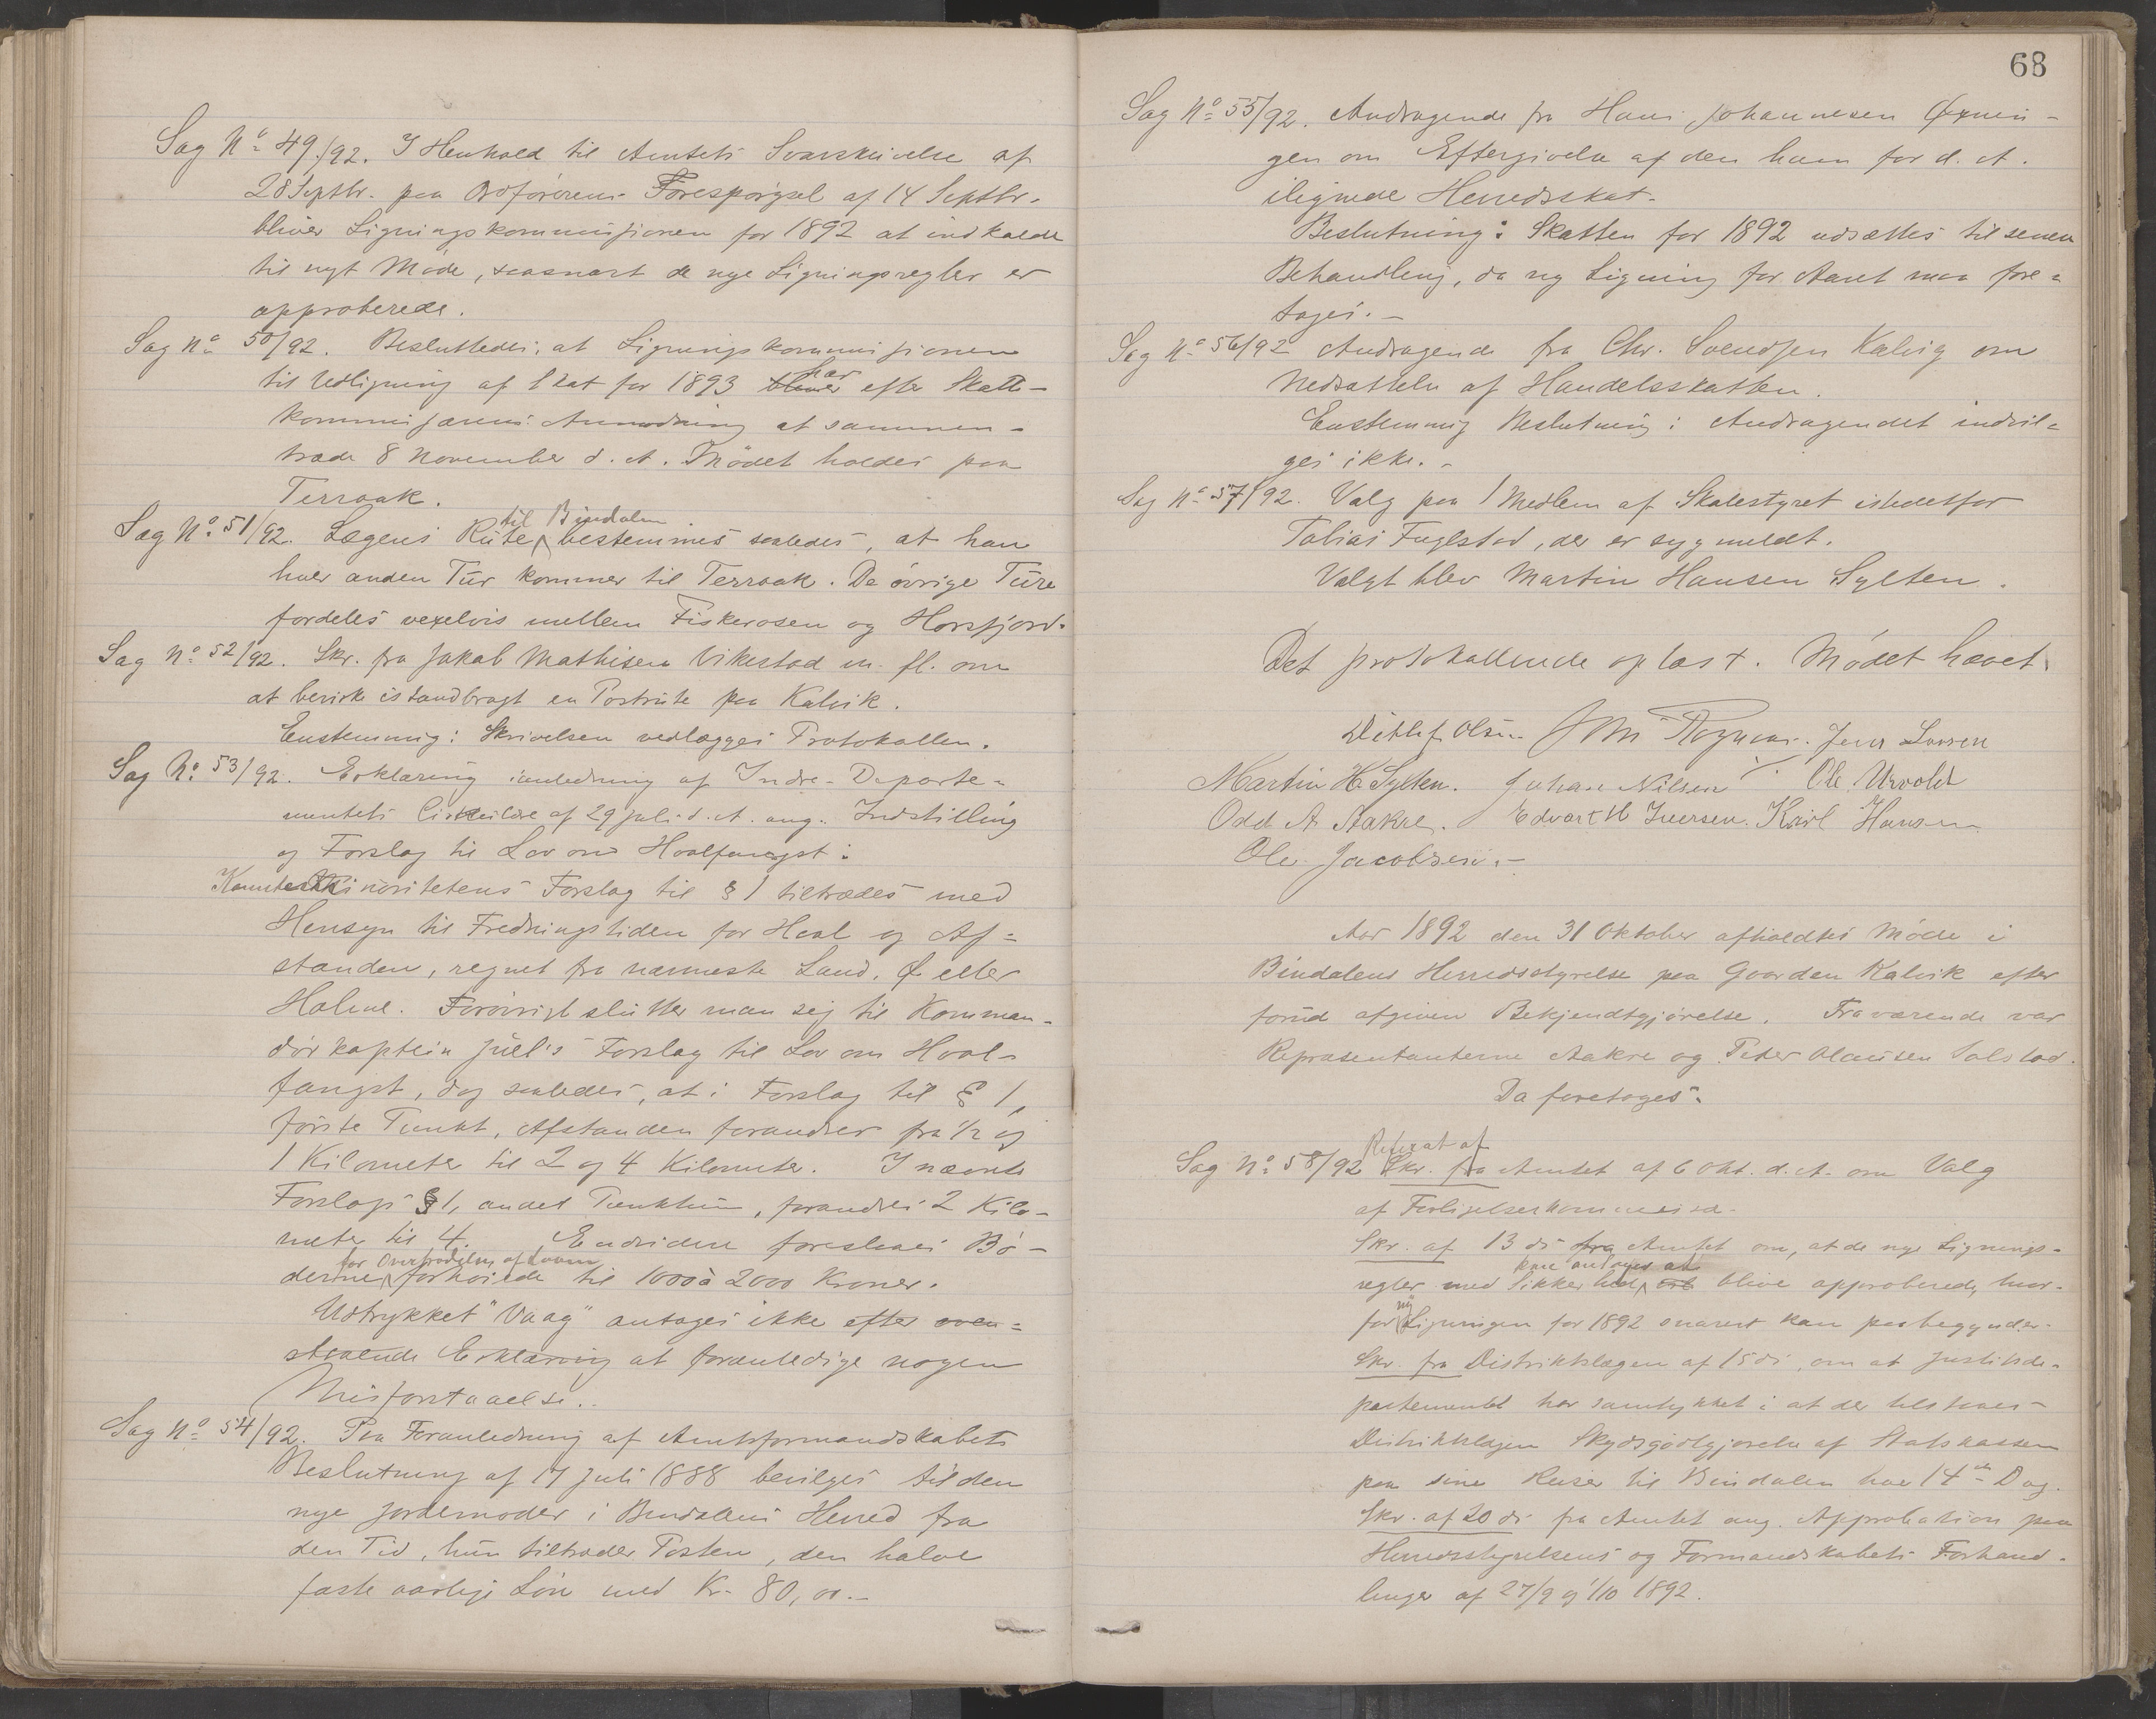 Sag No 49/92. I Henhold til Amtets Svarskrivelse af
28 Septbr. paa Ordførerens Forespørgsel af 14 Septbr.
bliver Ligningskommissionen for 1892 at indkalde
til nyt Møde, saasnart de nye Ligningsregler er
approberede.
Sag No 50/92. Besluttedes, at Ligningskommissionen
til Udligning af Skat for 1893 bliver har efter Skatte-
kommissærens Anmodning at sammen-
træde 8 November d. A. Mødet holdes paa
Terraak.
Sag No 51/92. Lægens Rute til Bindalen bestemmes saaledes, at han
hver anden Tur kommer til Terraak. De øvrige Ture
fordeles vexelvis mellem Fiskerosen og Horsfjord.
Sag No 52/92. Skr. fra Jakob Mathisen Vikestad m. fl. om
at bevirke istandbragt en Postrute paa Kalvik.
Enstemmig: Skrivelsen vedlægges Protokollen.
Sag No 53/92. Erklæring ianledning af Indre-Departe-
mentets Cirkulære af 29 Juli d. A. ang. Indstilling
og Forslag til Lov om Hvalfangst:
Komiteminoritetens Forslag til § 1 tiltrædes med
Hensyn til Fredningstiden for Hval og Af-
standen, regnet fra nærmeste Land, Ø eller
Holme. Forøvrigt slutter man sig til Komman-
dørkaptein Juel's Forslag til Lov om Hval-
fangst, dog saaledes, at i Forslag til § 1,
første Punkt, Afstanden forandres fra 1/2 og
1 Kilometer til 2 og 4 Kilometer. I nævnte
Forslags § 1, andet Punktum, forandres 2 Kilo-
meter til 4. Endvidere foreslaaes Bø-
derne for Overtrædelse af Loven forhøiede til 1000 à 2000 Kroner.
Udtrykket "Vaag" antages ikke efter oven-
staaende Erklæring at foranledige nogen
Misforstaaelse.
Sag No 54/92. Paa Foranledning af Amtsformandskabets
Beslutning af 17 Juli 1888 bevilges til den
nye Jordemoder i Bindalens Herred fra
den Tid, hun tiltræder Posten, den halve
faste aarlige Løn med Kr. 80,00.-
68
Sag No 55/92. Andragende fra Hans Johannesen Øxnin-
gen om Eftergivelse af den ham for d. A.
ilignede Herredsskat.
Beslutning: Skatten for 1892 udsættes til senere
Behandling, da ny Ligning for Aaret maa fore-
tages.-
Sag No 56/92 Andragende fra Chr. Svendsen Kalvig om
Nedsættelse af Handelsskatten.
Enstemmig Beslutning: Andragendet indvil-
ges ikke.-
Sag No 57/92. Valg paa 1 Medlem af Skolestyret istedetfor
Tobias Fuglstad, der er sygmeldt.
Valgt blev Martin Hansen Sylten.
Det protokollerede oplæst. Mødet hævet.
Ditlef Olsen Jens Larsen
Martin H. Sylten. Johan Nilsen Ole Urvold
Odd A Aakre. Edvart H Iversen. Karl Hansen
Ole Jacobsen.-
Aar 1892 den 31 Oktober afholdtes Møde i
Bindalens Herredsstyrelse paa Gaarden Kalvik efter
forud afgiven Bekjendtgjørelse. Fraværende var
Repræsentanterne Aakre og Peter Olausen Solstad.
Da foretoges:
Sag No 58/92 Referat af Skr. fra Amtet af 6 Okt. d. A. om Valg
af Forligelseskommissæ-
Skr. af 13 ds fra Amtet om, at de nye Lignings-
regler med Sikkerhed kan antages at blive approberede, hvor-
for ny Ligningen for 1892 snarest kan paabegyndes.
Skr. fra Distriktslægen af 15 ds, om at Justitsde-
partementet har samtykket i at der tilstaaes
Distriktslægen Skydsgodtgjørelse af Statskassen
paa sine Reiser til Bindalen hver 14de Dag.
Skr. af 20 ds fra Amtet ang. Approbation paa
Herredsstyrelsens og Formandskabets Forhand-
linger af 27/9 og 1/10 1892.